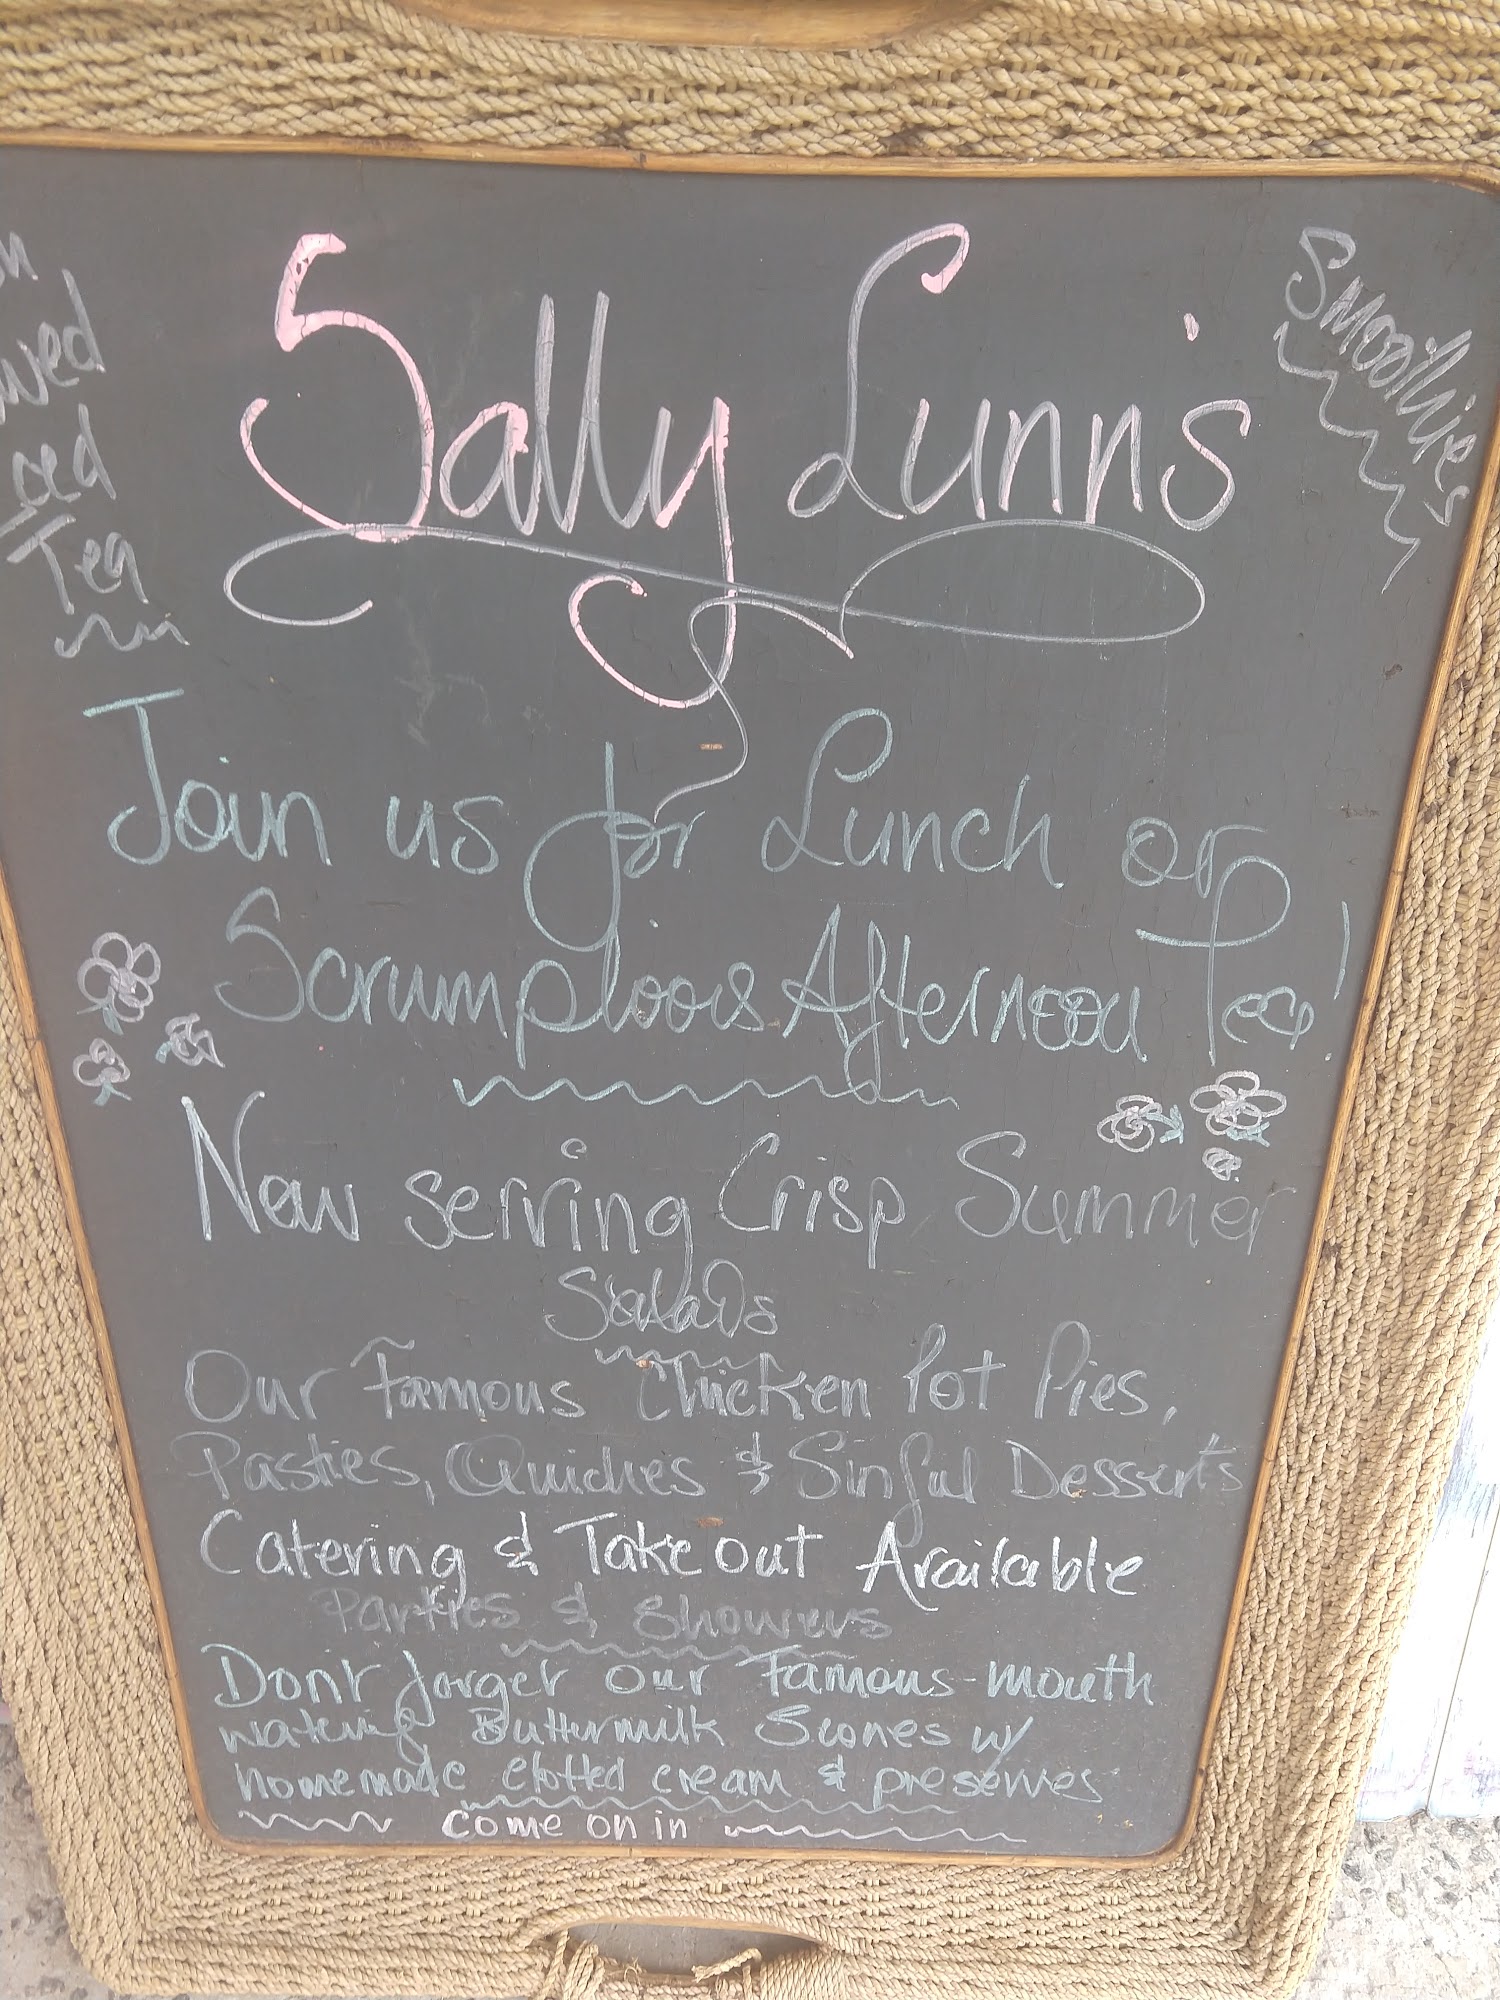 wed
Tea
Smoothies
Sally Lunn's
Join us for Lunch or
Scrumptious Afternoon Tea!
Now serving Crisp Summer
Salads
Our Famous Chicken Pot Pies,
Pasties, Quiches & Sinful Desserts
Catering & Take out Available
Parties & Showers
Don't forget our Famous-mouth
watering Buttermilk Scones w/
homemade clotted cream & preserves
come on in